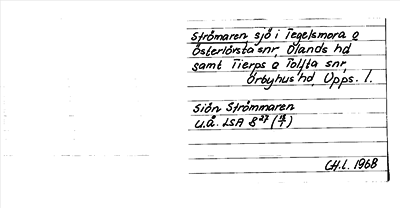 Strömaren sjö i Tegelsmora o
Österlövsta snr, Olands hd
samt Tierps o Tolfta snr,
Örbyhus hd, Upps. l.
Siön Strömmaren
u.å. LSA B 27 (4/7)
CH.L. 1968